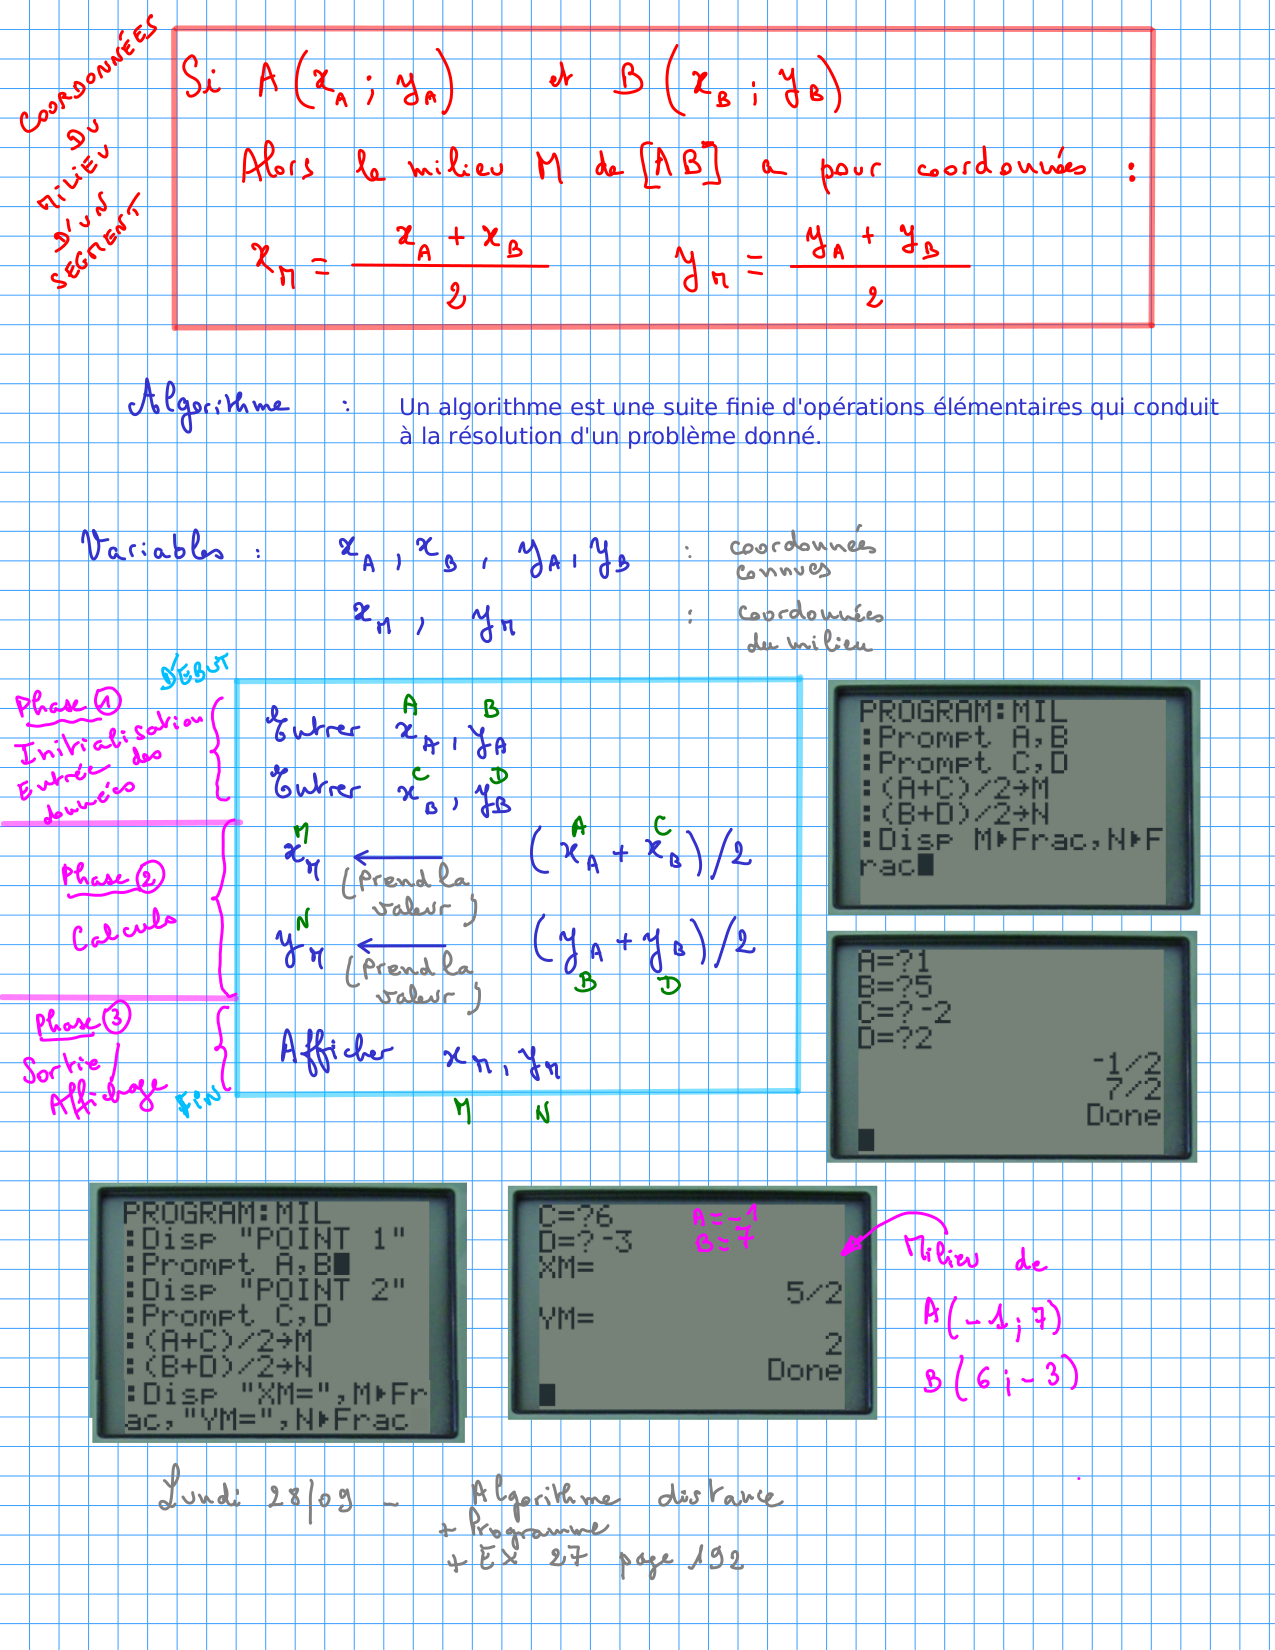 COORDONNÉES
DU
MILIEU
D'UN
SEGMENT
Si A (xA ; yA) et B (xB ; yB)
Alors le milieu M de [AB] a pour coordonnées :
xM = (xA + xB)/2 yM = (yA + yB)/2
Algorithme : Un algorithme est une suite finie d'opérations élémentaires qui conduit
à la résolution d'un problème donné.
Variables : xA , xB , yA , yB : coordonnées
connues
xM , yM : coordonnées
du milieu
DÉBUT
Phase 1
Initialisation
Entrée des
données
A B
Entrer xA , yA
C D
Entrer xB , yB
Phase 2
Calculs
M A C
xM ← (xA + xB)/2
(Prend la
valeur)
N
yM ← (yA + yB)/2
(Prend la B D
valeur)
Phase 3
Sortie/
Affichage
Afficher xM, yM
FIN
M N
PROGRAM:MIL
:Prompt A,B
:Prompt C,D
:(A+C)/2→M
:(B+D)/2→N
:Disp M▸Frac,N▸F
rac
A=?1
B=?5
C=?-2
D=?2
-1/2
7/2
Done
PROGRAM:MIL
:Disp "POINT 1"
:Prompt A,B
:Disp "POINT 2"
:Prompt C,D
:(A+C)/2→M
:(B+D)/2→N
:Disp "XM=",M▸Fr
ac,"YM=",N▸Frac
C=?6 A=-1
D=?-3 B=7
XM=
5/2
YM=
2
Done
Milieu de
A(-1;7)
B(6;-3)
Lundi 28/09 - Algorithme distance
+ Programme
+ EX 27 page 192